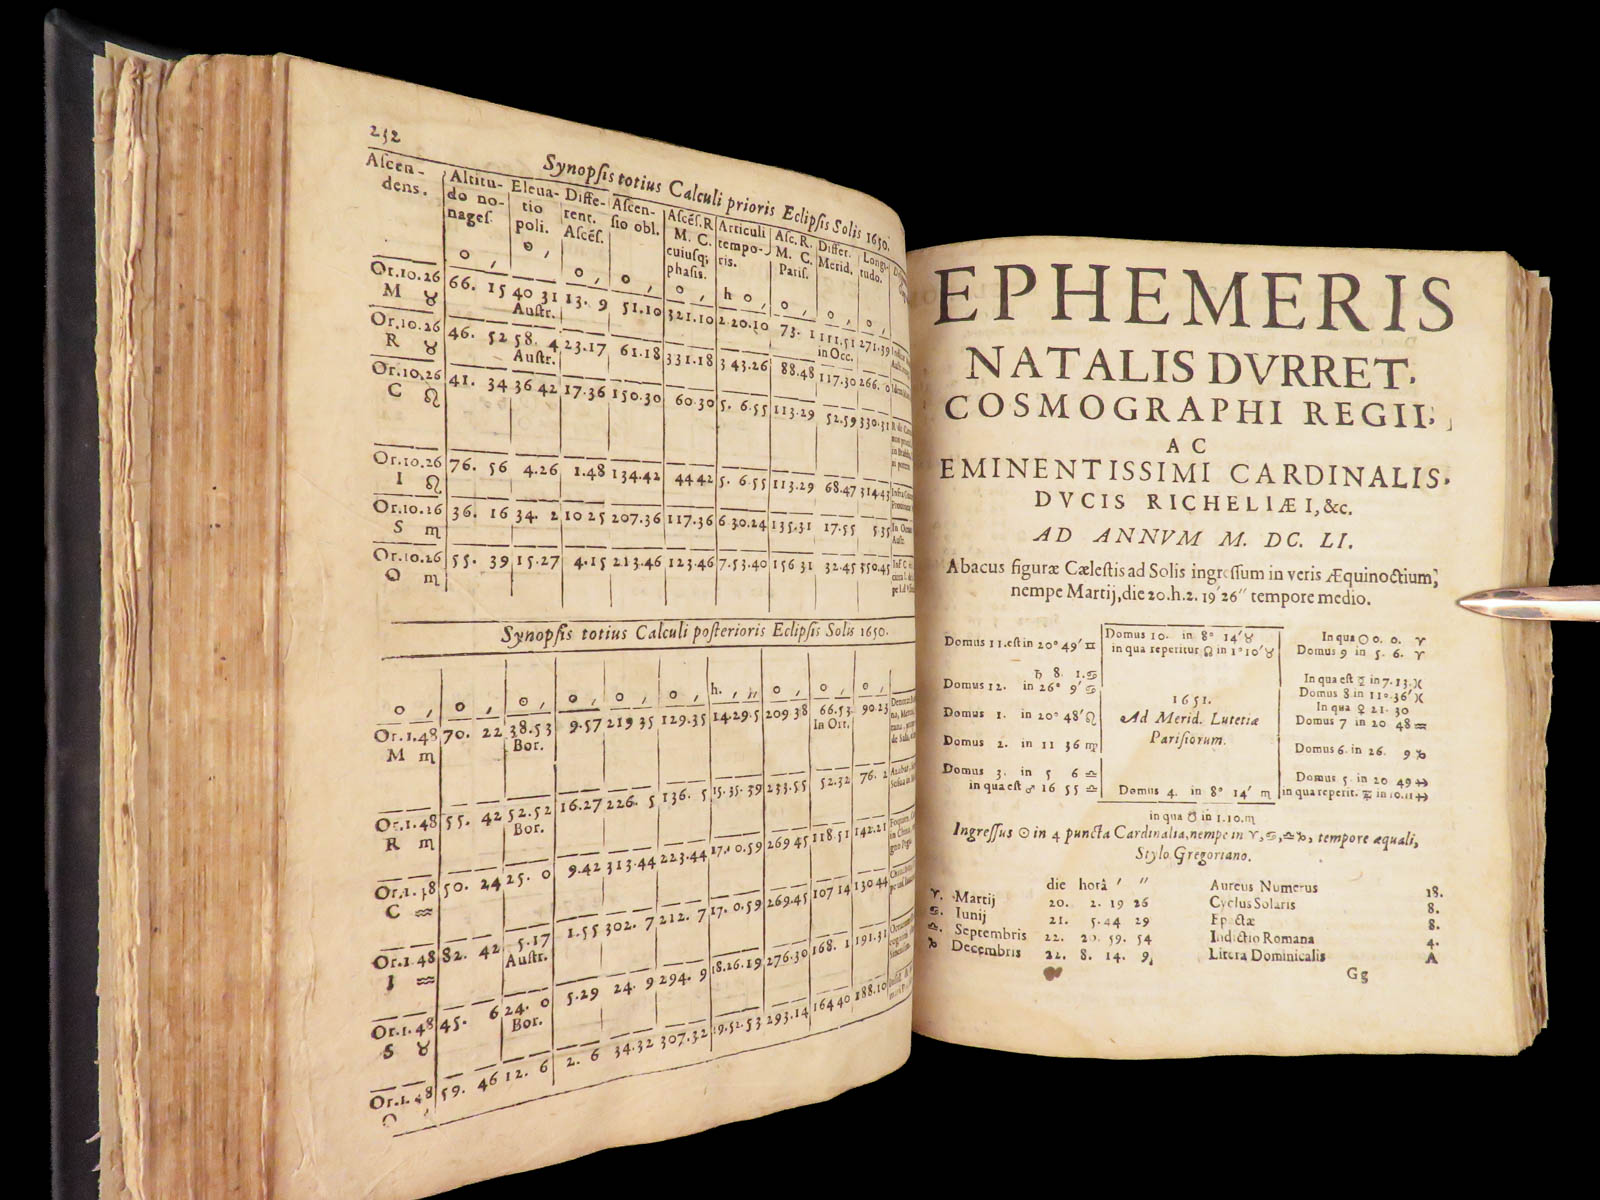 232
Synopſis totius Calculi prioris Eclipſis Solis 1650.
Aſcen-
dens.
Altitu-
do no-
nageſ.
Eleua-
tio
poli.
Diffe-
rent.
Aſcẽſ.
Aſcen-
ſio obl.
Aſcẽſ. R
M. C.
cuiuſq;
phaſis.
Articuli
tempo-
ris.
Aſc. R.
M. C.
Pariſ.
Differ.
Merid.
Longi-
tudo.
o , o , o , o , o , h o , o , o , o ,
Or.10.26 66. 15 40 31 13. 9 51.10 321.10 2.20.10 73. 1 111.51 271.39
M ♉ Auſtr. in Occ.
Or.10.26 46. 52 58. 4 23.17 61.18 331.18 3 43.26 88.48 117.30 266. 0
R ♉ Auſtr.
Or.10.26 41. 34 36 42 17.36 150.30 60.30 5. 6.55 113.29 52.59 330.31
C ♌
Or.10.26 76. 56 4.26 1.48 134.42 44 42 5. 6.55 113.29 68.47 314.43
I ♌
Or.10.26 36. 16 34. 2 10 25 207.36 117.36 6 30.24 135.31 17.55 5.35
S ♏
Or.10.26 55. 39 15.27 4.15 213.46 123.46 7.53.40 156 31 32.45 350.45
O ♏
Synopſis totius Calculi poſterioris Eclipſis Solis 1650.
o , o , o , o , o , o , h. , ,, o , o , o ,
Or.1.48 70. 22 38.53 9.57 219 35 129.35 14.29.5 209 38 66.53 90.23
M ♏ Bor. In Ort.
Or.1.48 55. 42 52.52 16.27 226. 5 136. 5 15.35.39 233.55 52.32 76. 2
R ♏ Bor.
Or.1.48 50. 24 25. 0 9.42 313.44 223.44 17.0.59 269 45 118.51 142.21
C ♒
Or.1.48 82. 42 5.17 1.55 302. 7 212. 7 17. 0.59 269.45 107 14 130 44
I ♒ Auſtr.
Or.1.48 45. 6 24. 0 5.29 24. 9 294. 9 18.26.19 276.30 168. 1 191.31
S ♉ Bor.
Or.1.48 59. 46 12. 6 2. 6 34.32 307.32 19.52.53 293.14 164 40 188.10
O
EPHEMERIS
NATALIS DVRRET.
COSMOGRAPHI REGII,
AC
EMINENTISSIMI CARDINALIS.
DVCIS RICHELIÆI, &c.
AD ANNVM M. DC. LI.
Abacus figuræ Cæleſtis ad Solis ingreſſum in veris Æquinoctium,
nempe Martij, die 20.h.2. 19′26″ tempore medio.
Domus 11.eſt in 20° 49′ ♊
♄ 8. 1.♋
Domus 12. in 26° 9′ ♋
Domus 1. in 20° 48′ ♌
Domus 2. in 11 36 ♍
Domus 3. in 5 6 ♎
in qua eſt ♂ 16 55 ♎
Domus 10. in 8° 14′ ♉
in qua reperitur ☊ in 1°10′ ♉
1651.
Ad Merid. Lutetiæ
Pariſiorum.
Domus 4. in 8° 14′ ♏
in qua ☋ in 1.10.♏
In qua ☉ 0. 0. ♈
Domus 9 in 5. 6. ♈
In qua eſt ☿ in 7.13.♓
Domus 8 in 11°.36′ ♓
In qua ♀ 21. 30
Domus 7 in 20 48 ♒
Domus 6. in 26. 9 ♑
Domus 5. in 20 49 ♐
in qua reperit. ♃ in 10.11 ♐
Ingreſſus ☉ in 4 puncta Cardinalia, nempe in ♈, ♋, ♎ ♑, tempore æquali,
Stylo Gregoriano.
die horâ ′ ″
♈. Martij 20. 2. 19 26
♋. Iunij 21. 5.44 29
♎. Septembris 22. 20. 59. 54
♑ Decembris 21. 8. 14. 9.
Aureus Numerus 18.
Cyclus Solaris 8.
Epactæ 8.
Indictio Romana 4.
Litera Dominicalis A
Gg